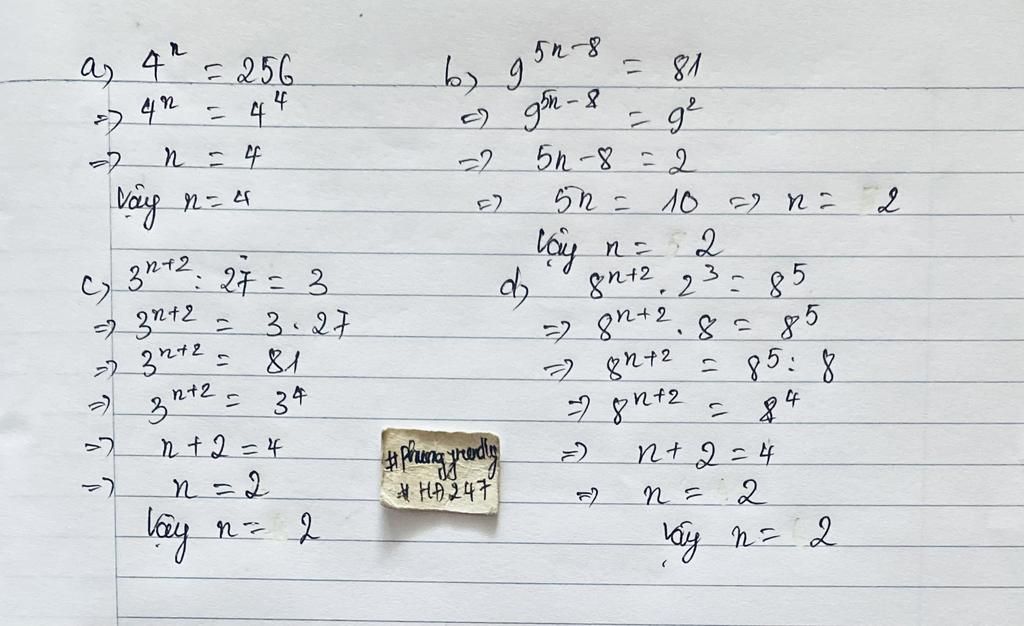 a) 4ⁿ = 256
=> 4ⁿ = 4⁴
=> n = 4
Vậy n = 4
b) 9⁵ⁿ⁻⁸ = 81
=> 9⁵ⁿ⁻⁸ = 9²
=> 5n - 8 = 2
=> 5n = 10 => n = 2
Vậy n = 2
c) 3ⁿ⁺² : 27 = 3
=> 3ⁿ⁺² = 3 . 27
=> 3ⁿ⁺² = 81
=> 3ⁿ⁺² = 3⁴
=> n + 2 = 4
=> n = 2
Vậy n = 2
d) 8ⁿ⁺² . 2³ = 8⁵
=> 8ⁿ⁺² . 8 = 8⁵
=> 8ⁿ⁺² = 8⁵ : 8
=> 8ⁿ⁺² = 8⁴
=> n + 2 = 4
=> n = 2
Vậy n = 2
# HA247